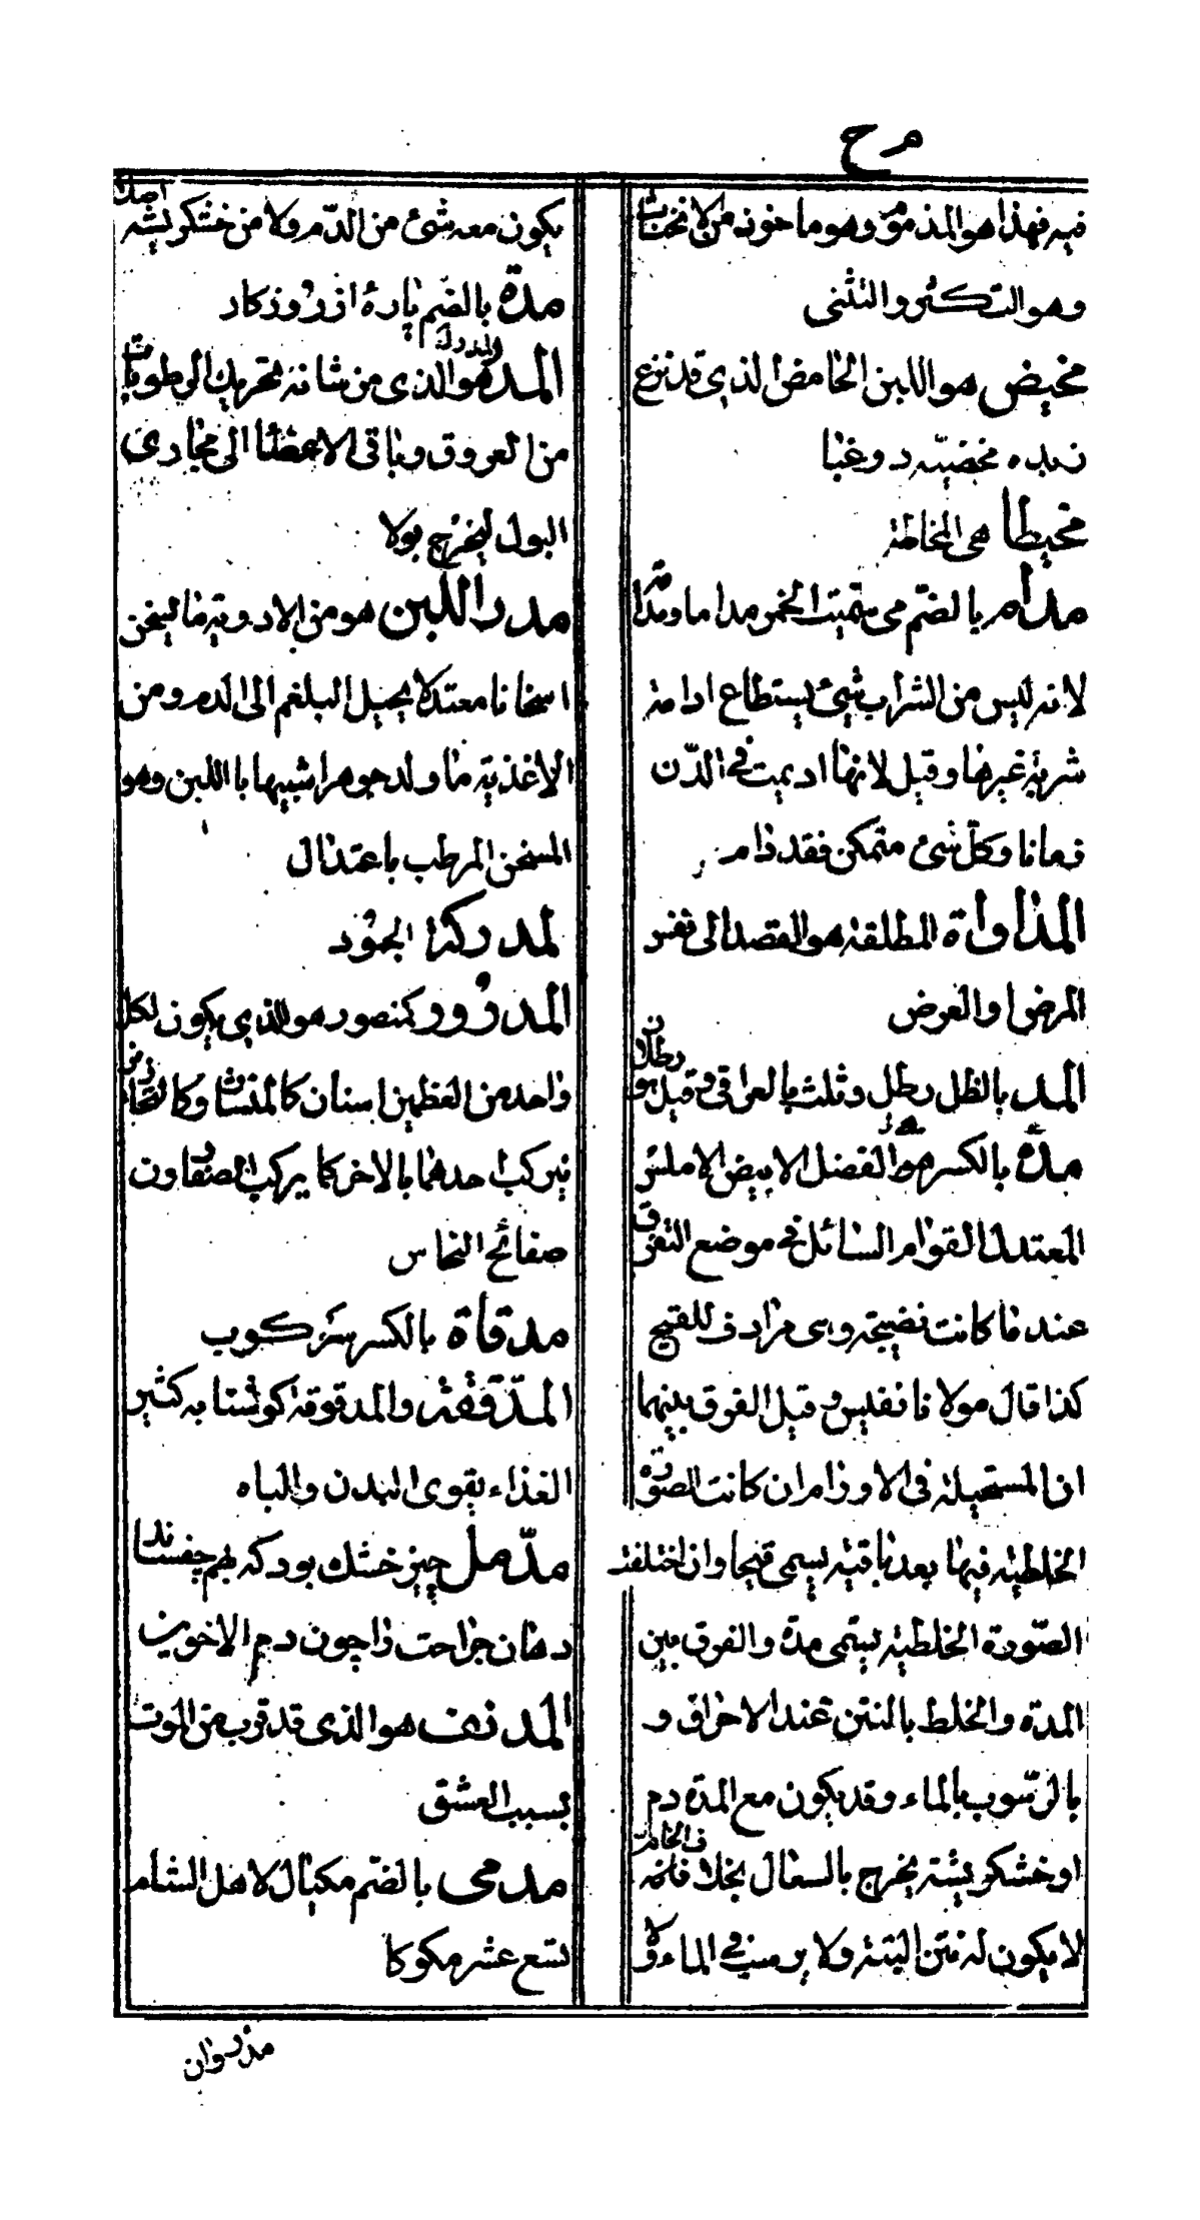 م ح
فيه فهذا هو المذموم وهو ماخوذ من الانخناث
وهو التكسر والتثنى
مخيض هو اللبن الحامض الذى قد نزع
زبده مخضيته دوغبا
مخيطا هى المخاطة
مدام بالضم مى سميت الخمر مداما ومدامة
لانه ليس من الشراب شيئ يستطاع ادامة
شربة غيرها وقيل لانها اديمت فى الدّن
زمانا وكل شئ متمكن فقد دام
المداواة المطلقة هو القصد الى نفس
المرض والعرض
المد بالظل رطل وثلث بالعراقى وقيل هو رطلان
مدة بالكسر هو الفضل الابيض الاملس
المعتدل القوام السائل فى موضع التفرق
عند ما كانت نضيجة وهى مرادف للقيح
كذا قال مولانا نفيس وقيل الفرق بينهما
ان المستحيلة فى الاورام ان كانت الصورة
الخلطية فيها بعد باقية يسمى قيحا وان اختلفت
الصّورة الخلطية يسمى مدة والفرق بين
المدة والخلط بالنتن عند الاحراق و
بالرّسوب بالماء وقد يكون مع المدة دم
او خشكريشة يخرج بالسعال بخلاف الخام فانه
لا يكون له نتن البتة ولا يرسب فى الماء ولا
يكون معه شئ من الدّم ولا من خشكريشه اصلا
مدة بالضم پارۀ از روزكار
المدر هو الذى من شانه تحريك الرطوبات
من العروق وباقى الاعضا الى مجارى
البول ليخرج بولا
مدر اللبن هو من الادوية ما ليسخن
اسخانا معتدلا يحيل البلغم الى الدم ومن
الاغذية ما ولد جوهرا شبيها با اللبن وهو
المسخن المرطب باعتدال
المدركة الجود
المدروز كمنصور هو الذى يكون لكل
واحد من العظمين اسنان كالمنشار وكا لنحاس
فيركب احدهما بالاخر كما يركب الصفارون
صفائح النحاس
مدقاة بالكسر سركوب
المدققة والمدقوقة كوشتابه كثير
الغذاء يقوى البدن والباه
مدّمل چيز خشك بود كه بهم چفساند
دهان جراحت را چون دم الاخوين
المدنف هو الذى قد قرب من الموت
بسبب العشق
مدمى بالضم مكيال لاهل الشام
تسع عشر مكوكا
مذروان